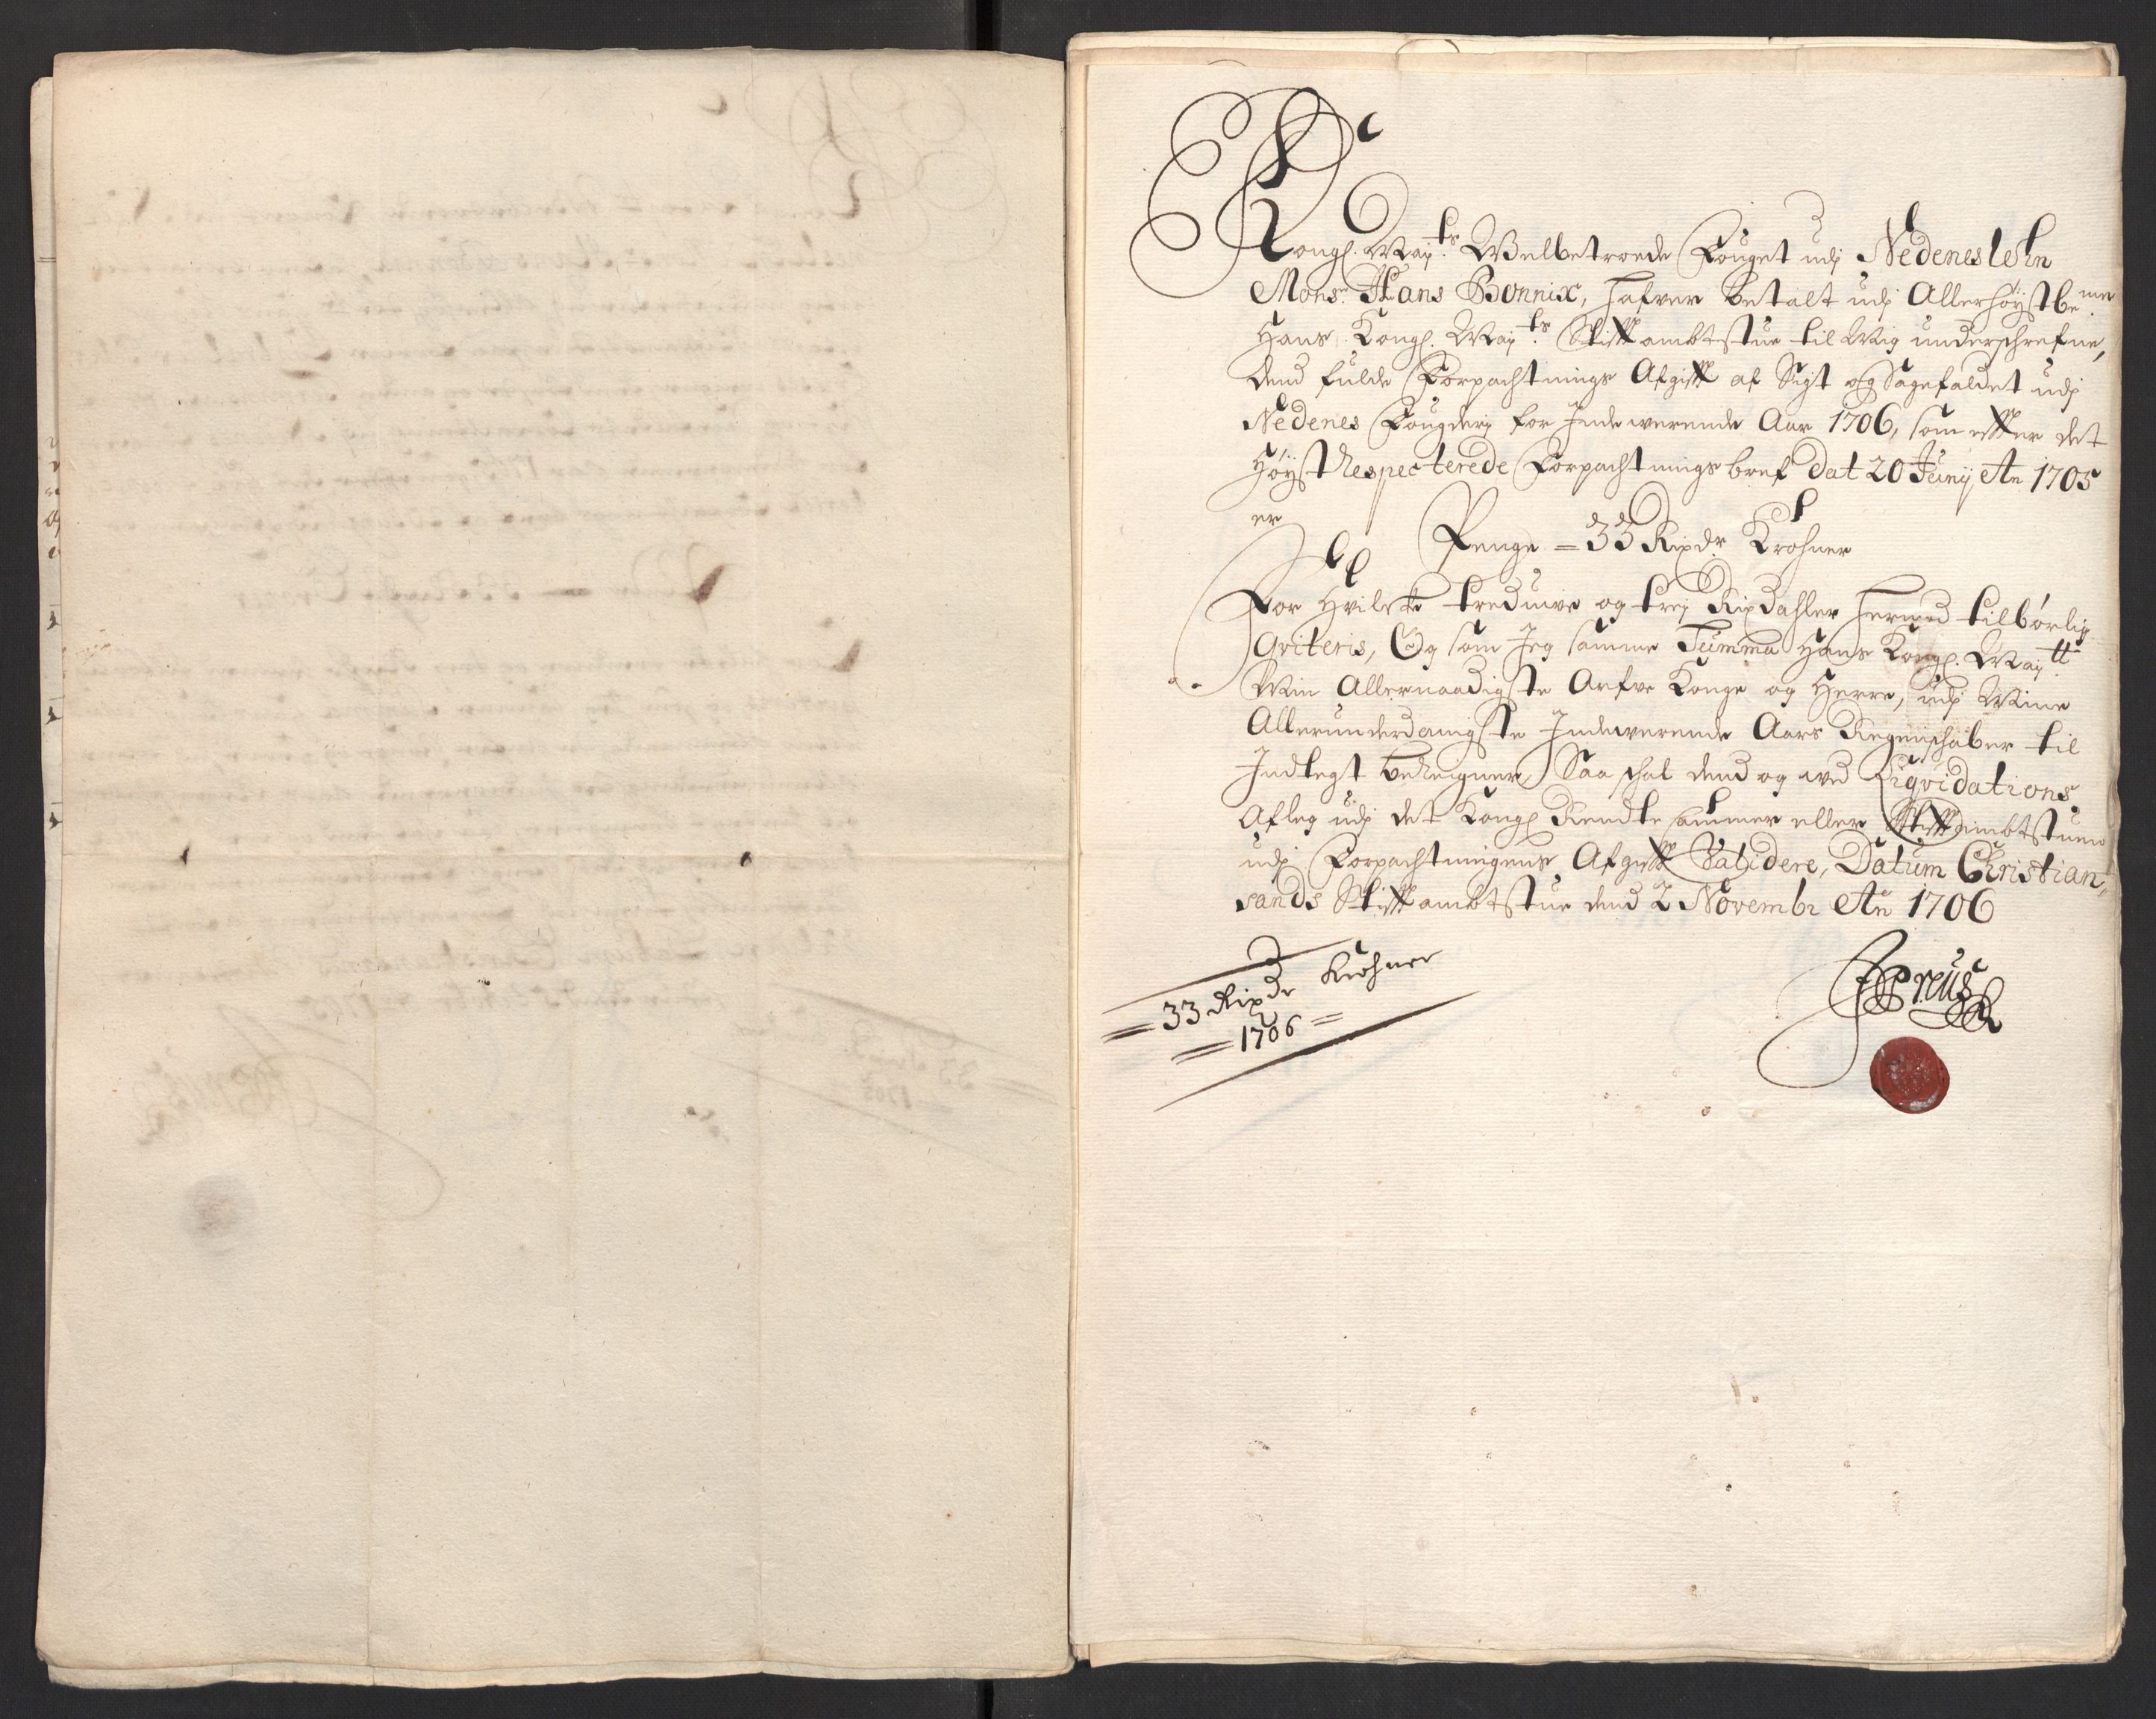 Kongl. Maÿ.ts Welbetroede Fouget udj Nedenes lehn
Mons.r Hans Bonnix, hafver betalt udj Allerhöÿstbe.me
Hans Kongl. Maÿ.ts Stiftambtstue til Mig underschrefne,
dend fulde Forpachtnings Afgift af Sigt og Sagefaldet udj
Nedenes Fougderj for Indewerende Aar 1706, som efter det
Höÿst Respecterede Forpachtnings bref Dat 20 Junÿ An 1705
er
Penge = 33 Rixdr Krohner
For hvilcke treduive og trej Rixdahler hermed tilbörlig
Qviteris, Og som Jeg samme Summa Hans Kongl. Maÿ.tt
Min Allernaadigste Arfve Konge og Herre, udj Mine
Allerunderdanigste Indewerende Aars Regenschaber til
Indtegt bereigner, Saa schal dend og ved Liqvidations
Afleg udj det Kongl Rendte Cammer eller Stiftambtstuen
udj Forpachtningens Afgift Validere, Datum Christian,
sands Stiftambtstue dend 2 Novembr An 1706
= 33 Rixdr Krohner
= 1706 =
Preus